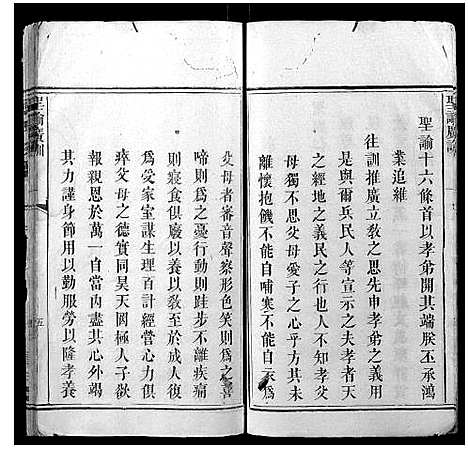 聖諭廣訓
聖諭十六條首以孝弟開其端朕丕承鴻
業追維
往訓推廣立敎之思先申孝弟之義用
是與爾兵民人等宣示之夫孝者天
之經地之義民之行也人不知孝父
母獨不思父母愛子之心乎方其未
離懷抱饑不能自哺寒不能自衣爲
父母者審音聲察形色笑則爲之喜
啼則爲之憂行動則跬步不離疾痛
則寢食俱廢以養以敎至於成人復
爲授家室謀生理百計經營心力俱
瘁父母之德實同昊天罔極人子欲
報親恩於萬一自當內盡其心外竭
其力謹身節用以勤服勞以隆孝養
聖諭廣訓
五